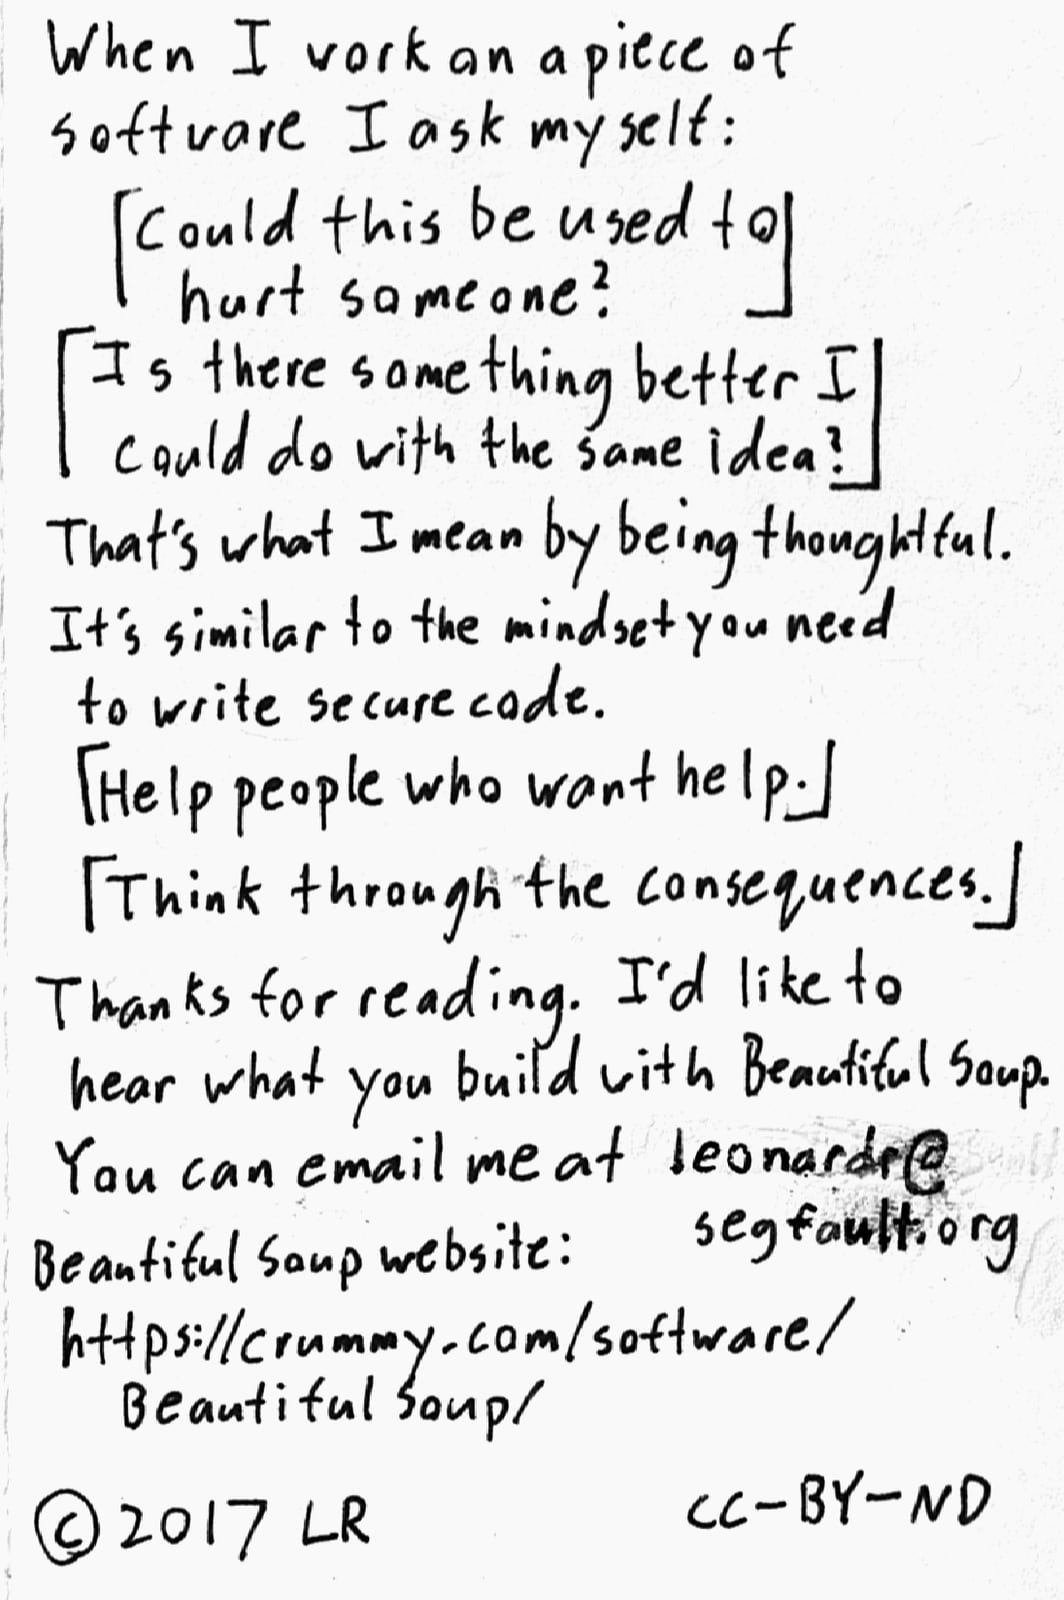 When I work on a piece of
software I ask myself:
⌈Could this be used to
hurt someone?⌋
⌈Is there something better I
could do with the same idea?⌋
That's what I mean by being thoughtful.
It's similar to the mindset you need
to write secure code.
⌈Help people who want help.⌋
⌈Think through the consequences.⌋
Thanks for reading. I'd like to
hear what you build with Beautiful Soup.
You can email me at leonardr@
segfault.org
Beautiful Soup website:
https://crummy.com/software/
BeautifulSoup/
© 2017 LR CC-BY-ND